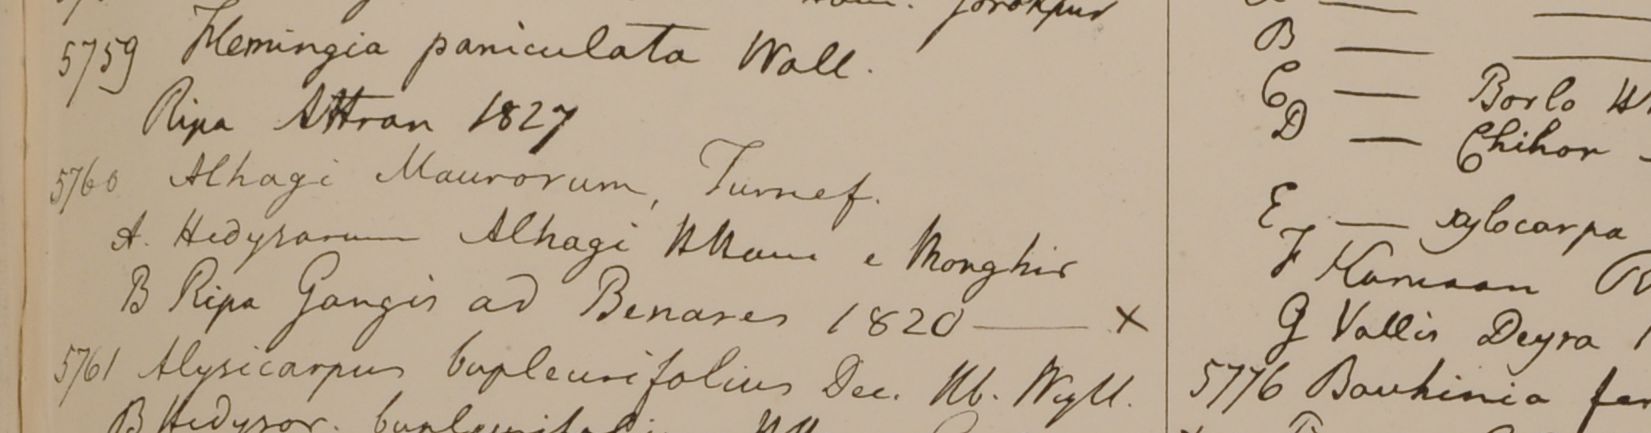 Gorakpur
5759 Flemingia paniculata Wall.
Ripa Attran 1827
5760 Alhagi Maurorum, Turnef.
A. Hedysarum Alhagi HHam e Monghir
B Ripa Gangis ad Benares 1820 — x
5761 Alysicarpus bupleurifolius Dec. Hb. Wight.
B Hedysar. bupleurifoli
B — —
C — Borlo
D — Chihor
E — xylocarpa
F Kamaon
G Vallis Deyra 1
5776 Bauhinia